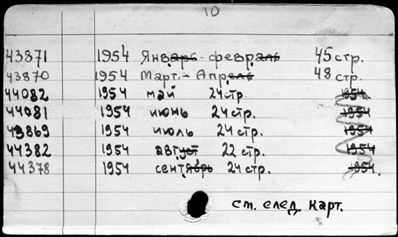 10
43871 1954 Январь-февраль 45 стр.
43870 1954 Март.-Апрель 48 стр.
44082 1954 май 24 стр. 1954
44081 1954 июнь 24 стр. 1954
43869 1954 июль 24 стр. 1954
44382 1954 август 22 стр. 1954
44378 1954 сентябрь 24 стр. 1954.
ст. след. карт.